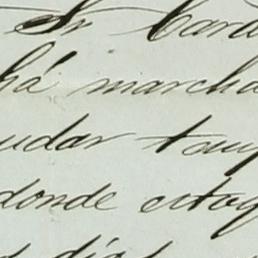 Sr Card
há marcha
udar tany
donde estoy